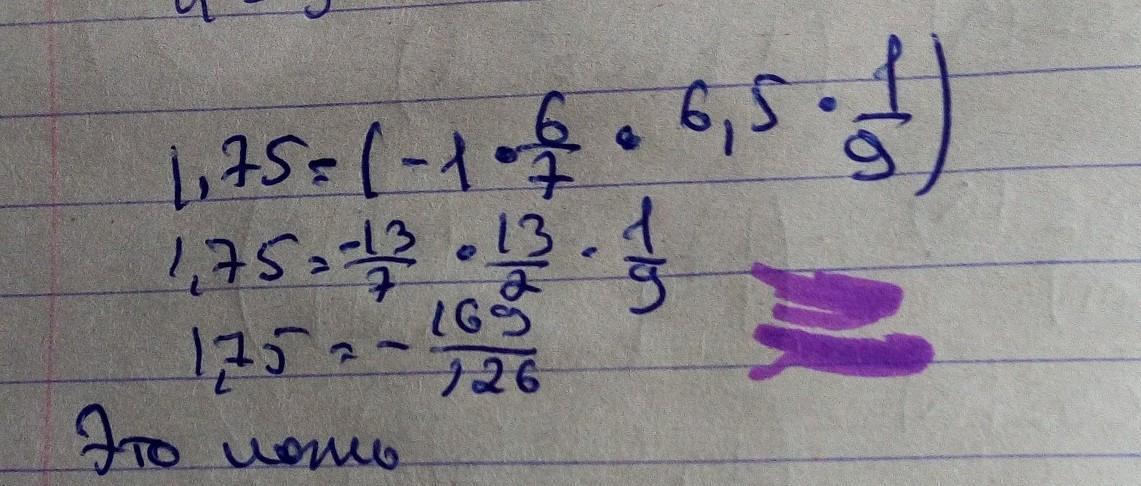 1,75 = (-1 · 6/7 · 6,5 · 1/9)
1,75 = -13/7 · 13/2 · 1/9
1,75 = - 169/126
Это ложь